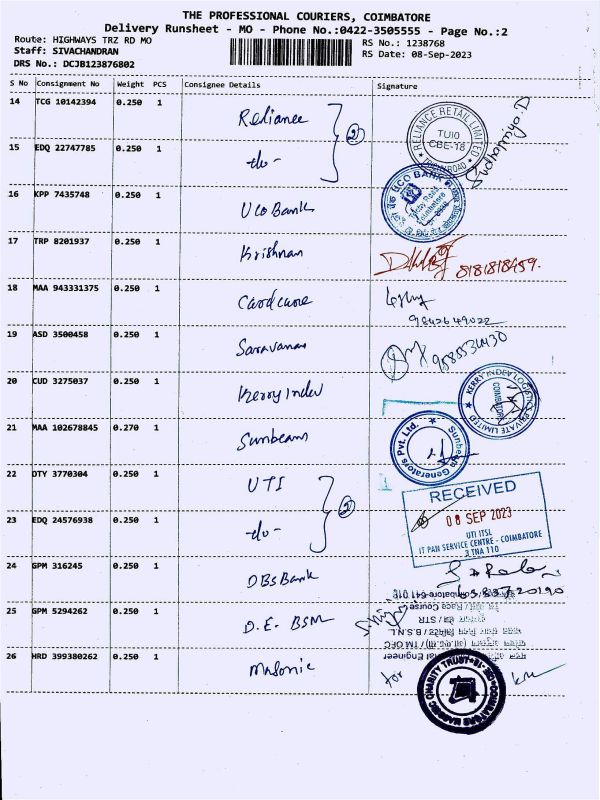 THE PROFESSIONAL COURIERS, COIMBATORE
Delivery Runsheet - MO - Phone No.:0422-3505555 - Page No.:2
Route: HIGHWAYS TRZ RD MO
RS No.: 1238768
Staff: SIVACHANDRAN
RS Date: 08-Sep-2023
DRS No.: DCJB123876802
S No Consignment No Weight PCS Consignee Details Signature
14 TCG 10142394 0.250 1 Reliance
RELIANCE RETAIL LIMITED
TUI0
CBE-18
15 EDQ 22747785 0.250 1 -do-
2
16 KPP 7435748 0.250 1 Uco Bank
UCO BANK
17 TRP 8201937 0.250 1 Krishnan
8181818459.
18 MAA 943331375 0.250 1 Cardcure
9842649022
19 ASD 3500458 0.250 1 Saravanan
20 CUD 3275037 0.250 1 Kerry Indev
KERRY INDEV LOGISTICS PRIVATE LIMITED
COIMBATORE
21 MAA 102678845 0.270 1 Sunbeam
Sunbeam Generators Pvt. Ltd.
22 DTY 3770304 0.250 1 UTI
2
RECEIVED
08 SEP 2023
UTI ITSL
IT PAN SERVICE CENTRE - COIMBATORE
3 TNA 110
23 EDQ 24576938 0.250 1 -do-
24 GPM 316245 0.250 1 DBS Bank
25 GPM 5294262 0.250 1 D.E. BSNL
Coimbatore-641 018
Race Course
STR
B.S.N.L
Engineer
26 HRD 399380262 0.250 1 Masonic
for
COIMBATORE MASONIC CHARITY TRUST